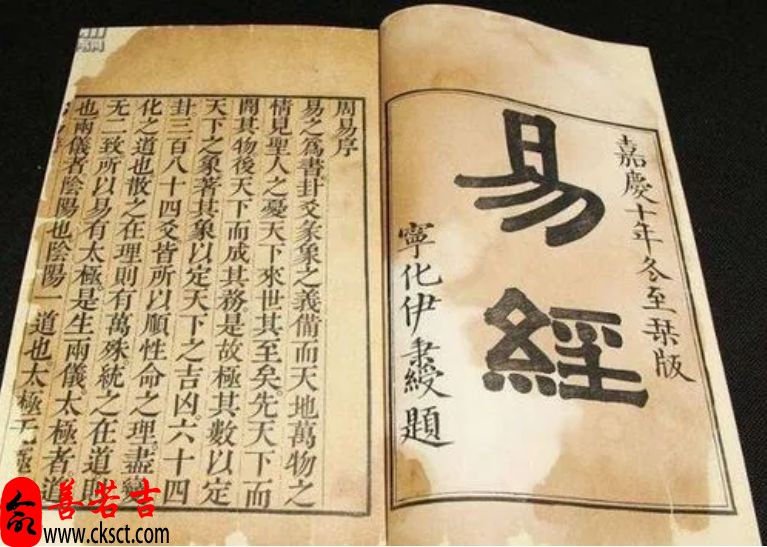 嘉慶十年冬至栞版
易經
寧化伊秉綬題
周易序
易之爲書卦爻彖象之義備而天地萬物之
情見聖人之憂天下來世其至矣先天下而
開其物後天下而成其務是故極其數以定
天下之象著其象以定天下之吉凶六十四
卦三百八十四爻皆所以順性命之理盡變
化之道也散之在理則有萬殊統之在道則
无二致所以易有太極是生兩儀太極者道
也兩儀者陰陽也陰陽一道也太極无
善若吉
www.cksct.com